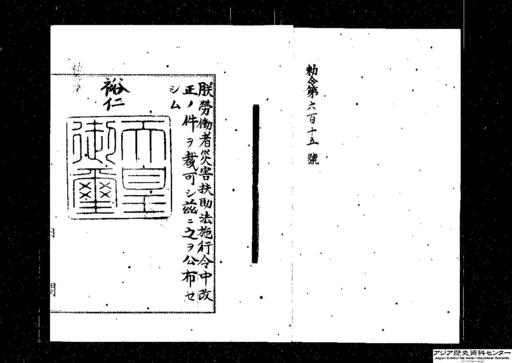 勅令第六百十五號
朕勞働者災害扶助法施行令中改
正ノ件ヲ裁可シ茲ニ之ヲ公布セ
シム
裕仁
天皇
御璽
内
閣
アジア歴史資料センター
Japan Center for Asian Historical Records